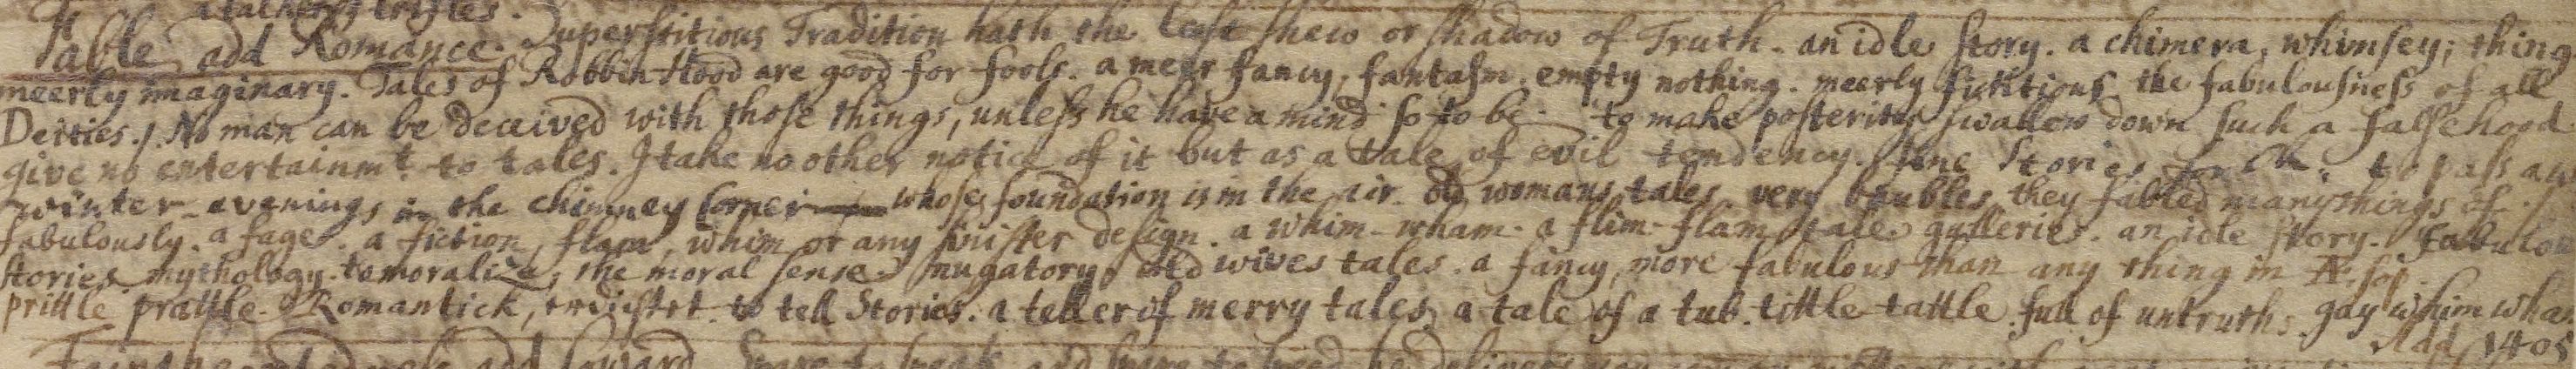 a tatherg trifles.
Fable, add Romance. Superstitious Tradition hath the least shew or shadow of Truth. an idle story. a chimera, whimsey; thing
meerly imaginary. Tales of Robbin-Hood are good for fools. a meer fancy, fantasm. empty nothing. meerly fictitious. the fabulousness of all
Deities. No man can be deceived with those things, unless he have a mind so to be. to make posterity swallow down such a falsehood
give no entertainmt. to tales. I take no other notice of it but as a tale of evil tendency. fine Stories to pass aw
winter-evenings in the chimney Corner whose foundation is in the air. old womans tales. very baubles, they fabled many things of
fabulously. a fage. a fiction, flam, whim or any sinister design. a whim-wham. a flim-flam tale gulleries. an idle story. Fabulou
stories mythology. to moralize, the moral sense. nugatory, old wives tales. a fancy, more fabulous than any thing in Æsop.
prittle prattle. Romantick, to tell Stories. a teller of merry tales, a tale of a tub. tittle-tattle. full of untruths. gay whim wham
Add 1405
add